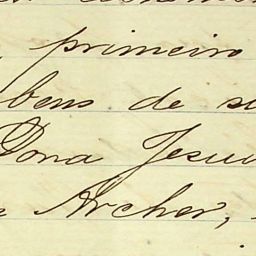 primeiro
bens de
Dona Jesui
Archer,